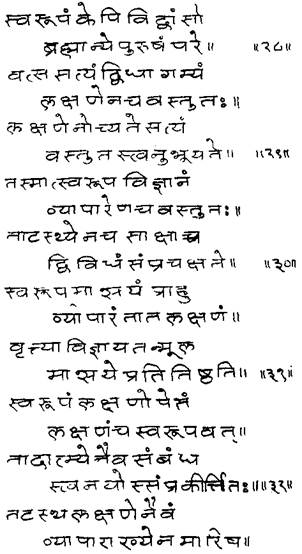 स्वरूपं के पि विद्वांसो
ब्रह्मान्ये पुरुषं परे॥ ॥२८॥
वत्स सत्यं द्विधा गम्यं
लक्षणेन च वस्तुतः।
लक्षणेनोच्यते सत्यं
वस्तुतस्त्वनुभूयते॥ ॥२९॥
तस्मात्स्वरूप विज्ञानं
व्यापारेण च वस्तुतः॥
ताटस्थ्येन च साक्षाच्च
द्विविधं संप्रचक्षते॥ ॥३०॥
स्वरूपमाश्रयं प्राहु
र्व्यापारं तात लक्षणं॥
वृत्त्या विज्ञाय तन्मूल
माश्रये प्रतितिष्ठति॥ ॥३१॥
स्वरूपं लक्षणोपेतं
लक्षणं च स्वरूपवत्॥
तादात्म्येनैव संबंध
स्त्वनयोस्संप्रकीर्त्तितः॥ ॥३२॥
तटस्थ लक्षणेनैवं
व्यापाराख्येन मारिष॥